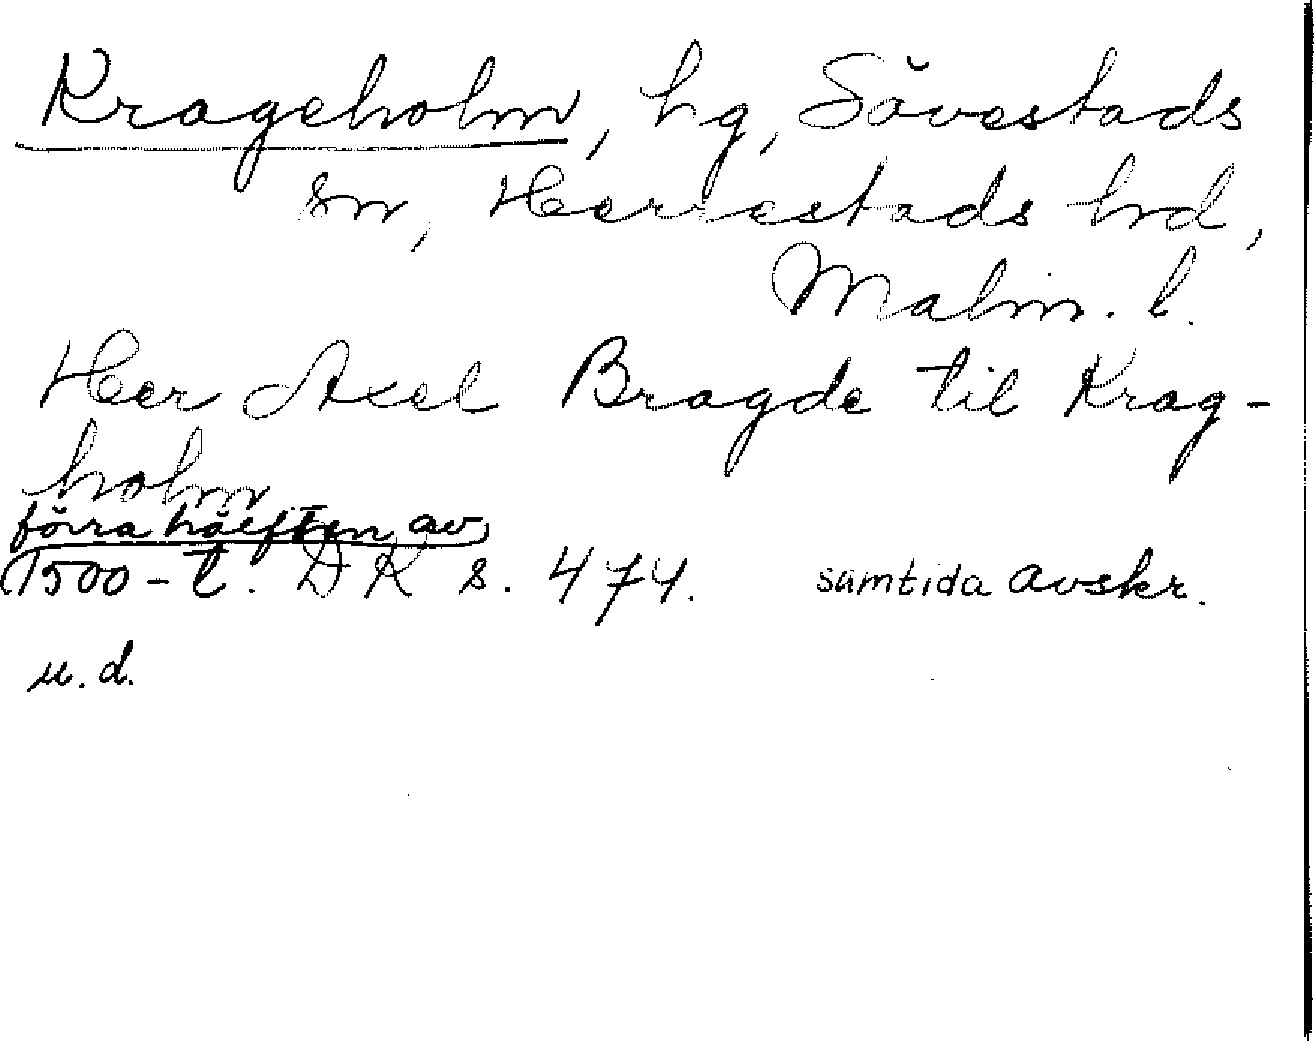 Krageholm, hg, Sövestads
sn, Herrestads hrd,
Malm. l.
Her Axel Bragde til Krag-
holm
förra hälften av
1500-t. DK s. 474. samtida avskr.
u. d.